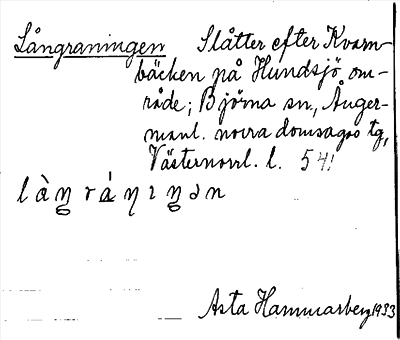 Långraningen Slåtter efter Kvarn-
bäcken på Hundsjö om-
råde; Björna sn., Ånger-
manl. norra domsagas tg,
Västernorrl. l. 54!
Asta Hammarberg 1933